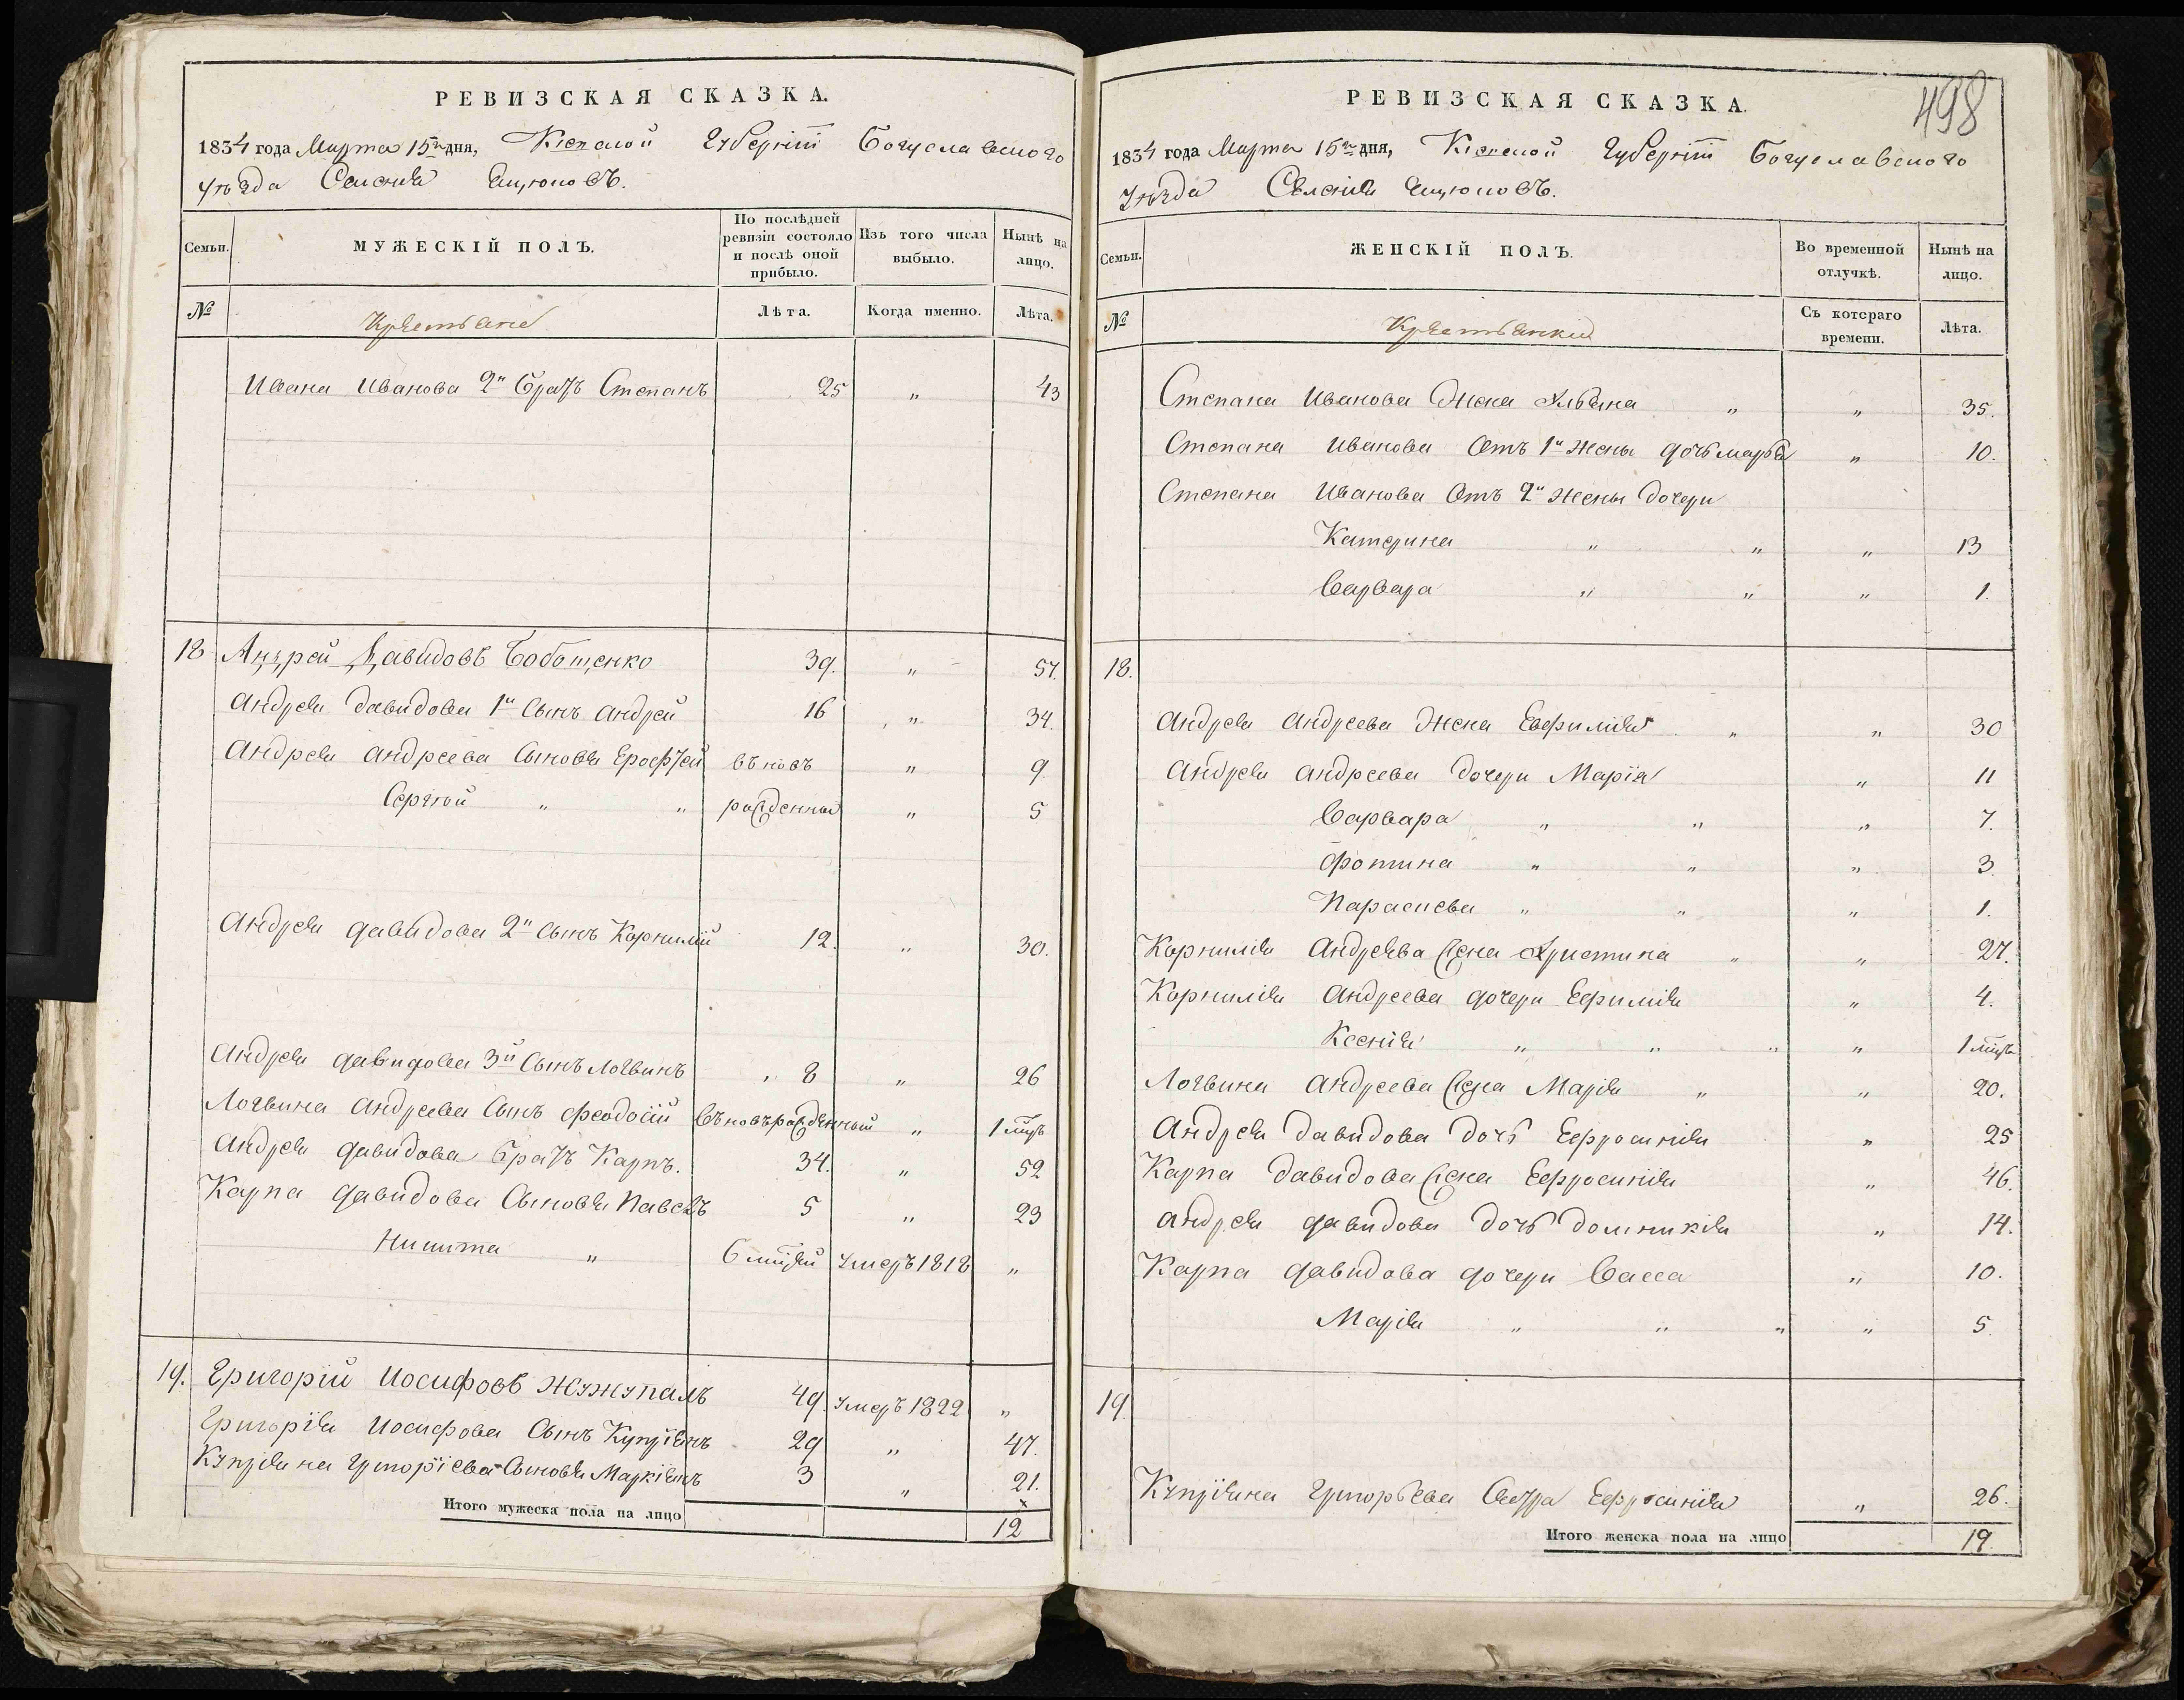 РЕВИЗСКАЯ СКАЗКА.
1834 года Марта 15го дня, Кіевской Губерніи Богуславского
уѣзда Селенія Яцюковъ.
Семьи. МУЖЕСКІЙ ПОЛЪ. По послѣдней ревизіи состояло и послѣ оной прибыло. Изъ того числа выбыло. Нынѣ на лицо.
№ Крестьяне Лѣта. Когда именно. Лѣта.
Ивана Иванова 2й братъ Степанъ 25 „ 43
18 Андрей Давидовъ Бобошенко 39. „ 57.
Андрея Давидова 1й Сынъ Андрей 16 „ 34.
Андрея Андреева Сыновья Ерофѣй вѣновъ „ 9
Сергѣй „ „ рожденные „ 5
Андрея Давидова 2й Сынъ Корнилій 12. „ 30.
Андрея Давидова 3й Сынъ Логвинъ 8 „ 26
Логвина Андреева Сынъ Феодосій вѣновърожденный „ 1 мцъ
Андрея Давидова братъ Карпъ. 34. „ 52
Карпа Давидова Сыновья Павелъ 5 „ 23
Никита „ 6 мцей умеръ 1818 „
19. Григорій Иосифовъ Жужупалъ 49. умеръ 1822 „
Григорія Иосифова Сынъ Купріянъ 29 „ 47.
Купріяна Григоріева Сыновья Маркіянъ 3 „ 21.
Итого мужеска пола на лицо 12
498
РЕВИЗСКАЯ СКАЗКА.
1834 года Марта 15го дня, Кіевской Губерніи Богуславского
уѣзда Селенія Яцюковъ.
Семьи. ЖЕНСКІЙ ПОЛЪ. Во временной отлучкѣ. Нынѣ на лицо.
№ Крестьянки Съ котораго времени. Лѣта.
Степана Иванова Жена Ульяна „ „ 35.
Степана Иванова Отъ 1й Жены дочь Марья „ 10.
Степана Иванова Отъ 2й Жены дочери
Катерина „ „ „ 13
Варвара „ „ „ 1.
18.
Андрея Андреева Жена Евфимія „ „ 30
Андрея Андреева дочери Марія „ 11
Варвара „ „ „ 7.
Фотина „ „ „ 3.
Параскева „ „ „ 1.
Корнилія Андреева Жена Христина „ „ 27.
Корнилія Андреева дочери Ефимія „ 4.
Ксенія „ „ „ „ 1 мцъ
Логвина Андреева Жена Марія „ „ 20.
Андрея Давидова дочь Ефросинія „ 25
Карпа Давидова Жена Ефросинія „ 46.
Андрея Давидова дочь Домникія „ 14.
Карпа Давидова дочери Васса „ 10.
Марія „ „ „ „ 5.
19
Купріяна Григорьева Сестра Ефросинія „ 26.
Итого женска пола на лицо 19.